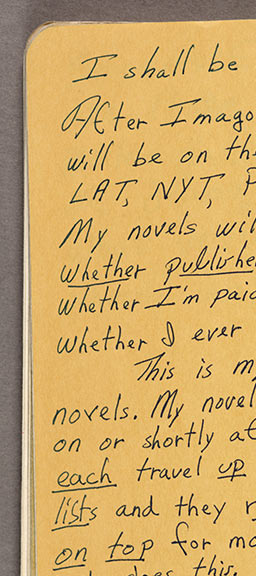 I shall be
After Imago
will be on th
LAT, NYT, P
My novels wil
whether publishe
whether I'm paid
whether I ever
This is my
novels. My novel
on or shortly at
each travel up
lists and they r
on top for mo
does this.